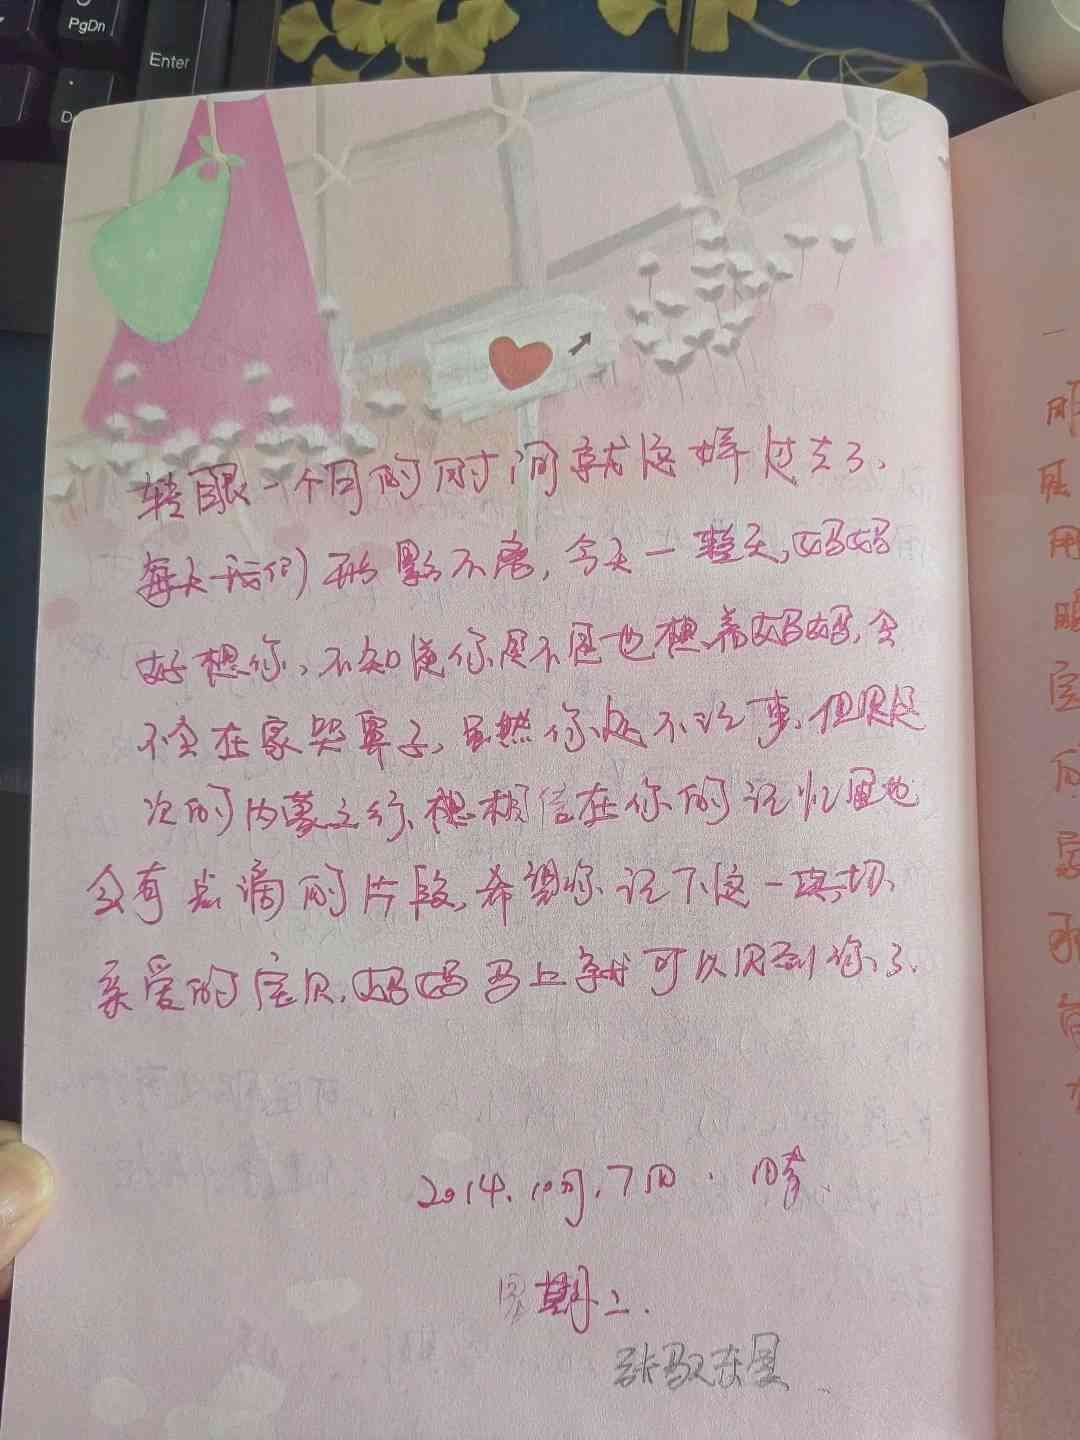 PgDn
Enter
转眼一个月的时间就这样过去了、
每天我们形影不离,今天一整天,妈妈
好想你、不知道你是不是也想着妈妈,会
不会在家哭鼻子,虽然你还不记事、但是这
次的内蒙之行、想相信在你的记忆里也
会有点滴的片段,希望你记下这一切、
亲爱的宝贝,妈妈马上就可以见到你了、
2014.10月.7日.晴
星期二.